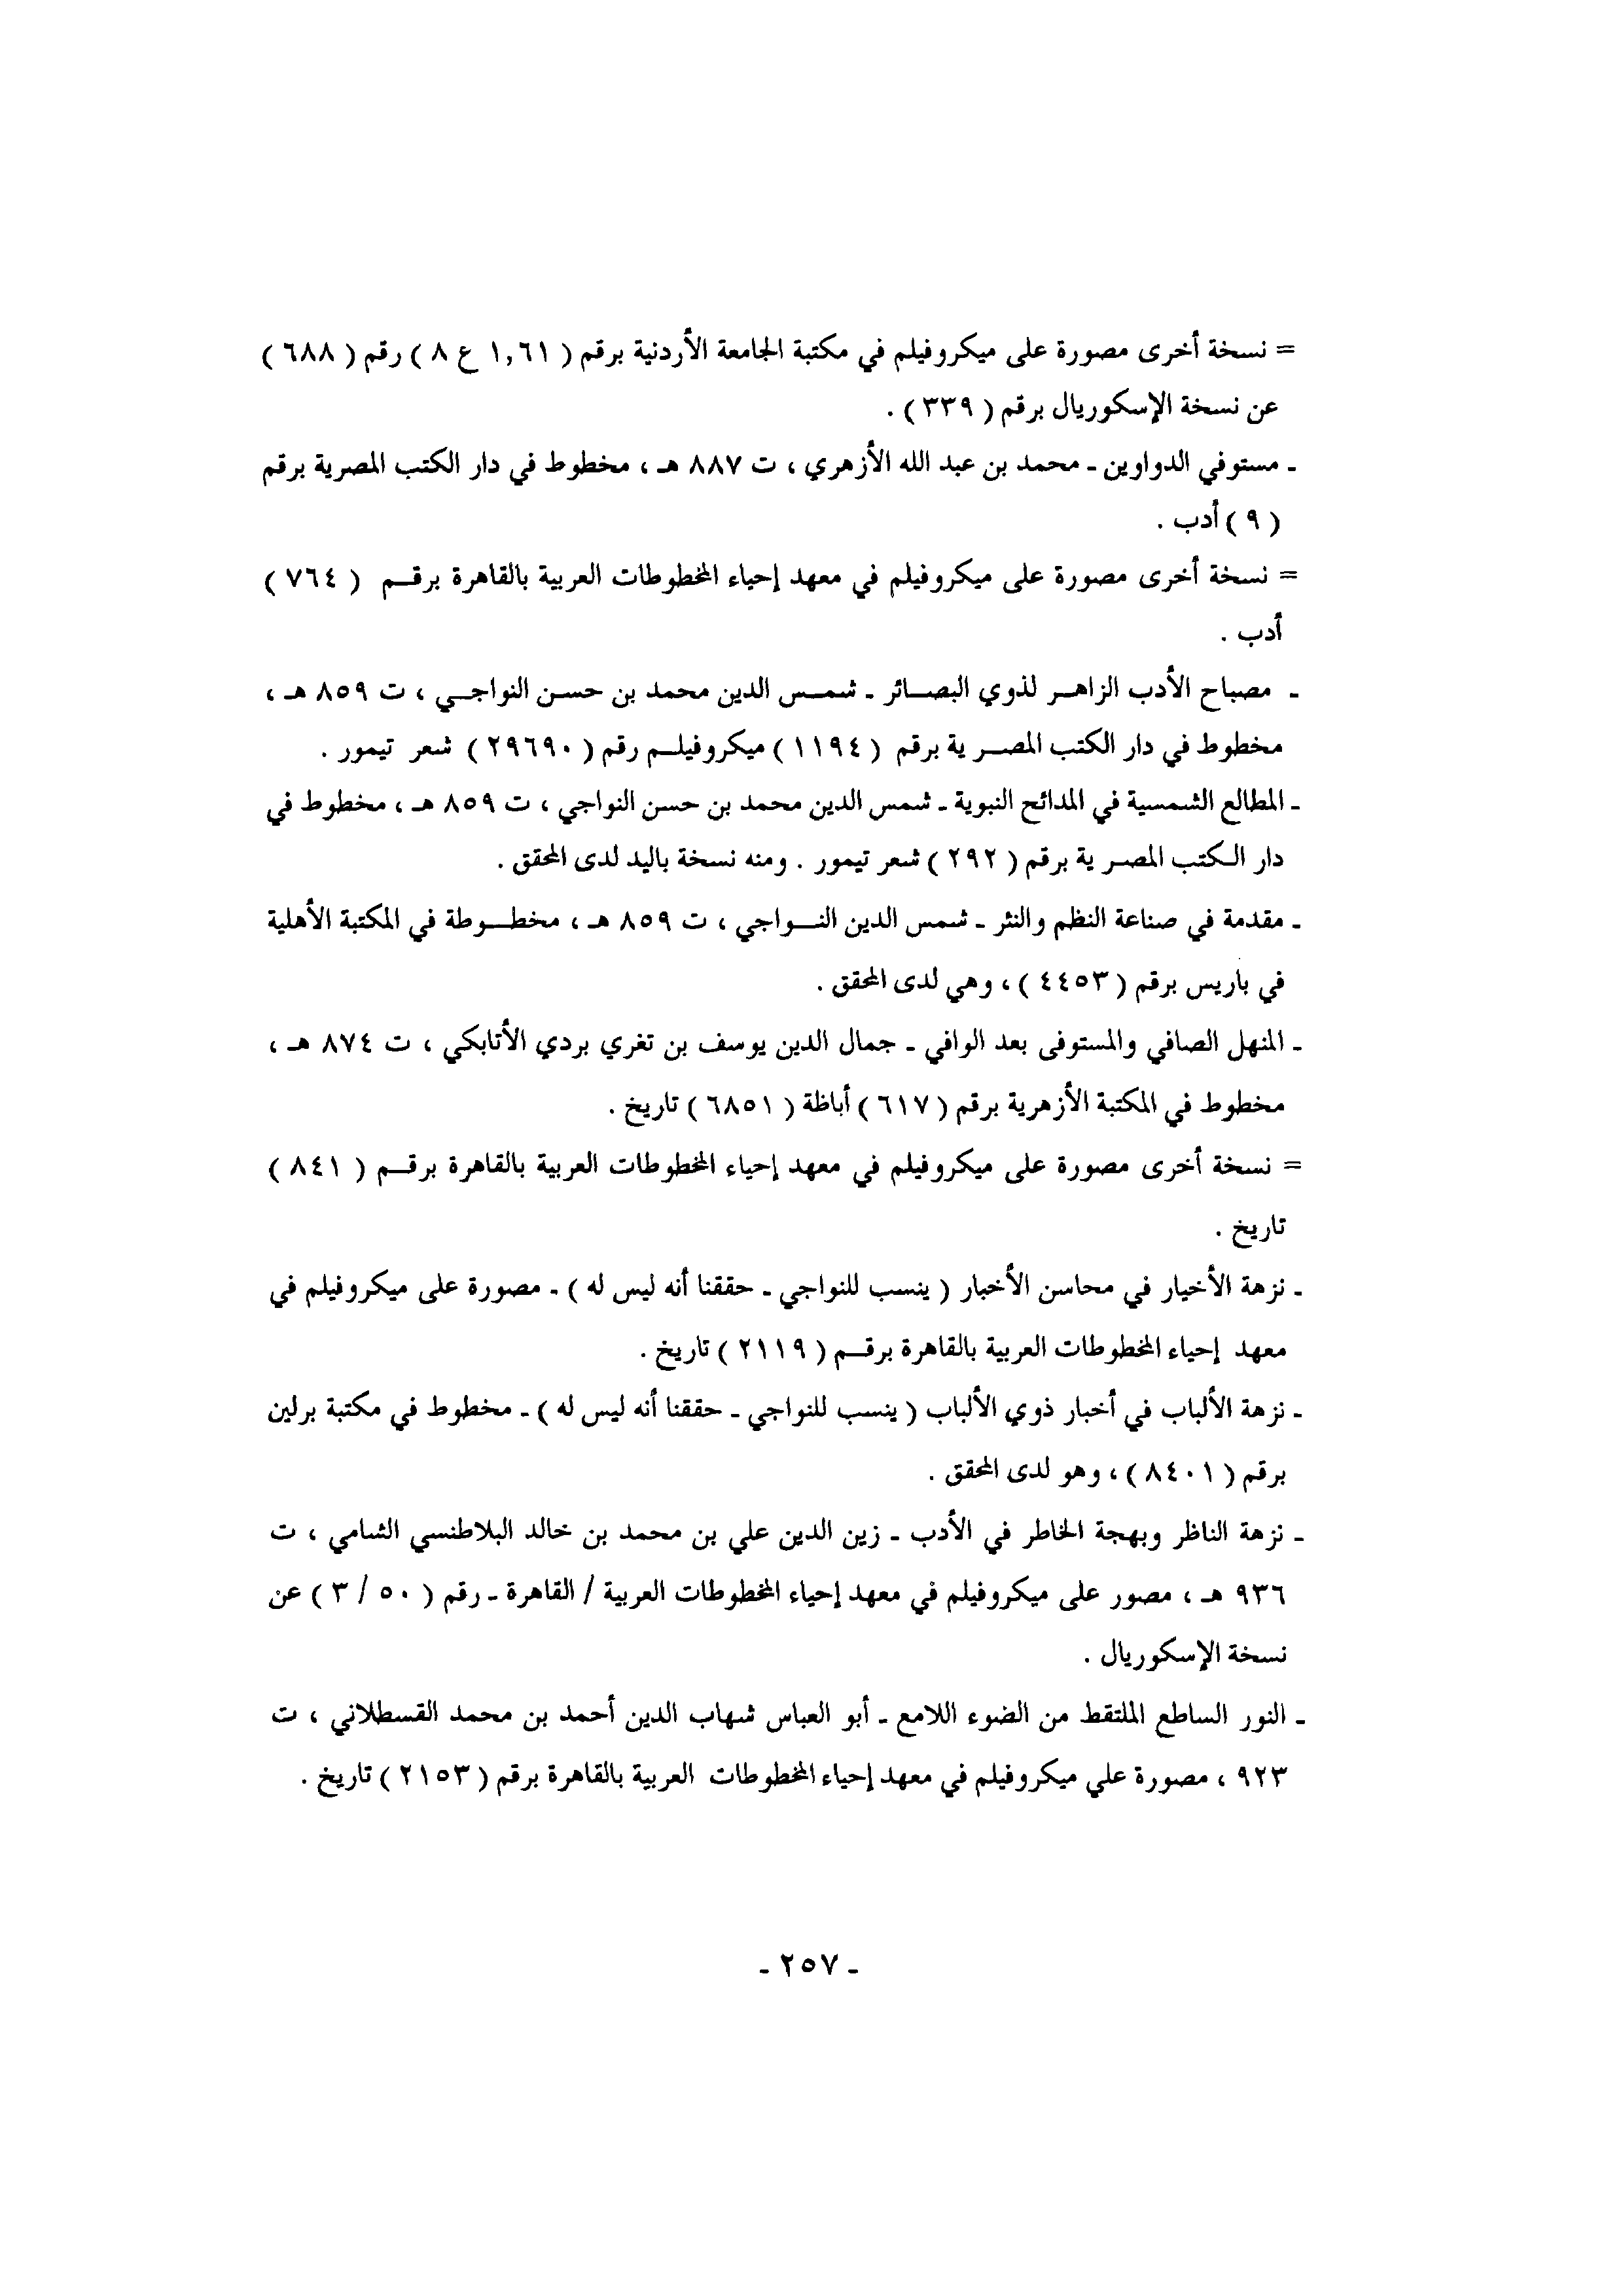 = نسخة أخرى مصورة على ميكروفيلم في مكتبة الجامعة الأردنية برقم ( ١,٦١ ع ٨ ) رقم ( ٦٨٨ )
عن نسخة الإسكوريال برقم ( ٣٣٩ ) .
ـ مستوفي الدواوين ـ محمد بن عبد الله الأزهري ، ت ٨٨٧ هـ ، مخطوط في دار الكتب المصرية برقم
( ٩ ) أدب .
= نسخة أخرى مصورة على ميكروفيلم في معهد إحياء المخطوطات العربية بالقاهرة برقـم ( ٧٦٤ )
أدب .
ـ مصباح الأدب الزاهـر لذوي البصـائر ـ شمـس الدين محمد بن حسـن النواجـي ، ت ٨٥٩ هـ ،
مخطوط في دار الكتب المصـرية برقم ( ١١٩٤ ) ميكروفيلـم رقم ( ٢٩٦٩٠ ) شعر تيمور .
ـ المطالع الشمسية في المدائح النبوية ـ شمس الدين محمد بن حسن النواجي ، ت ٨٥٩ هـ ، مخطوط في
دار الكتب المصـرية برقم ( ٢٩٢ ) شعر تيمور . ومنه نسخة باليد لدى المحقق .
ـ مقدمة في صناعة النظم والنثر ـ شمس الدين النـواجي ، ت ٨٥٩ هـ ، مخطـوطة في المكتبة الأهلية
في باريس برقم ( ٤٤٥٣ ) ، وهي لدى المحقق .
ـ المنهل الصافي والمستوفى بعد الوافي ـ جمال الدين يوسف بن تغري بردي الأتابكي ، ت ٨٧٤ هـ ،
مخطوط في المكتبة الأزهرية برقم ( ٦١٧ ) أباظة ( ٦٨٥١ ) تاريخ .
= نسخة أخرى مصورة على ميكروفيلم في معهد إحياء المخطوطات العربية بالقاهرة برقـم ( ٨٤١ )
تاريخ .
ـ نزهة الأخيار في محاسن الأخبار ( ينسب للنواجي ـ حققنا أنه ليس له ) ـ مصورة على ميكروفيلم في
معهد إحياء المخطوطات العربية بالقاهرة برقـم ( ٢١١٩ ) تاريخ .
ـ نزهة الألباب في أخبار ذوي الألباب ( ينسب للنواجي ـ حققنا أنه ليس له ) ـ مخطوط في مكتبة برلين
برقم ( ٨٤٠١ ) ، وهو لدى المحقق .
ـ نزهة الناظر وبهجة الخاطر في الأدب ـ زين الدين علي بن محمد بن خالد البلاطنسي الشامي ، ت
٩٣٦ هـ ، مصور على ميكروفيلم في معهد إحياء المخطوطات العربية / القاهرة ـ رقم ( ٥٠ / ٣ ) عن
نسخة الإسكوريال .
ـ النور الساطع الملتقط من الضوء اللامع ـ أبو العباس شهاب الدين أحمد بن محمد القسطلاني ، ت
٩٢٣ ، مصورة علي ميكروفيلم في معهد إحياء المخطوطات العربية بالقاهرة برقم ( ٢١٥٣ ) تاريخ .
ـ ٢٥٧ ـ